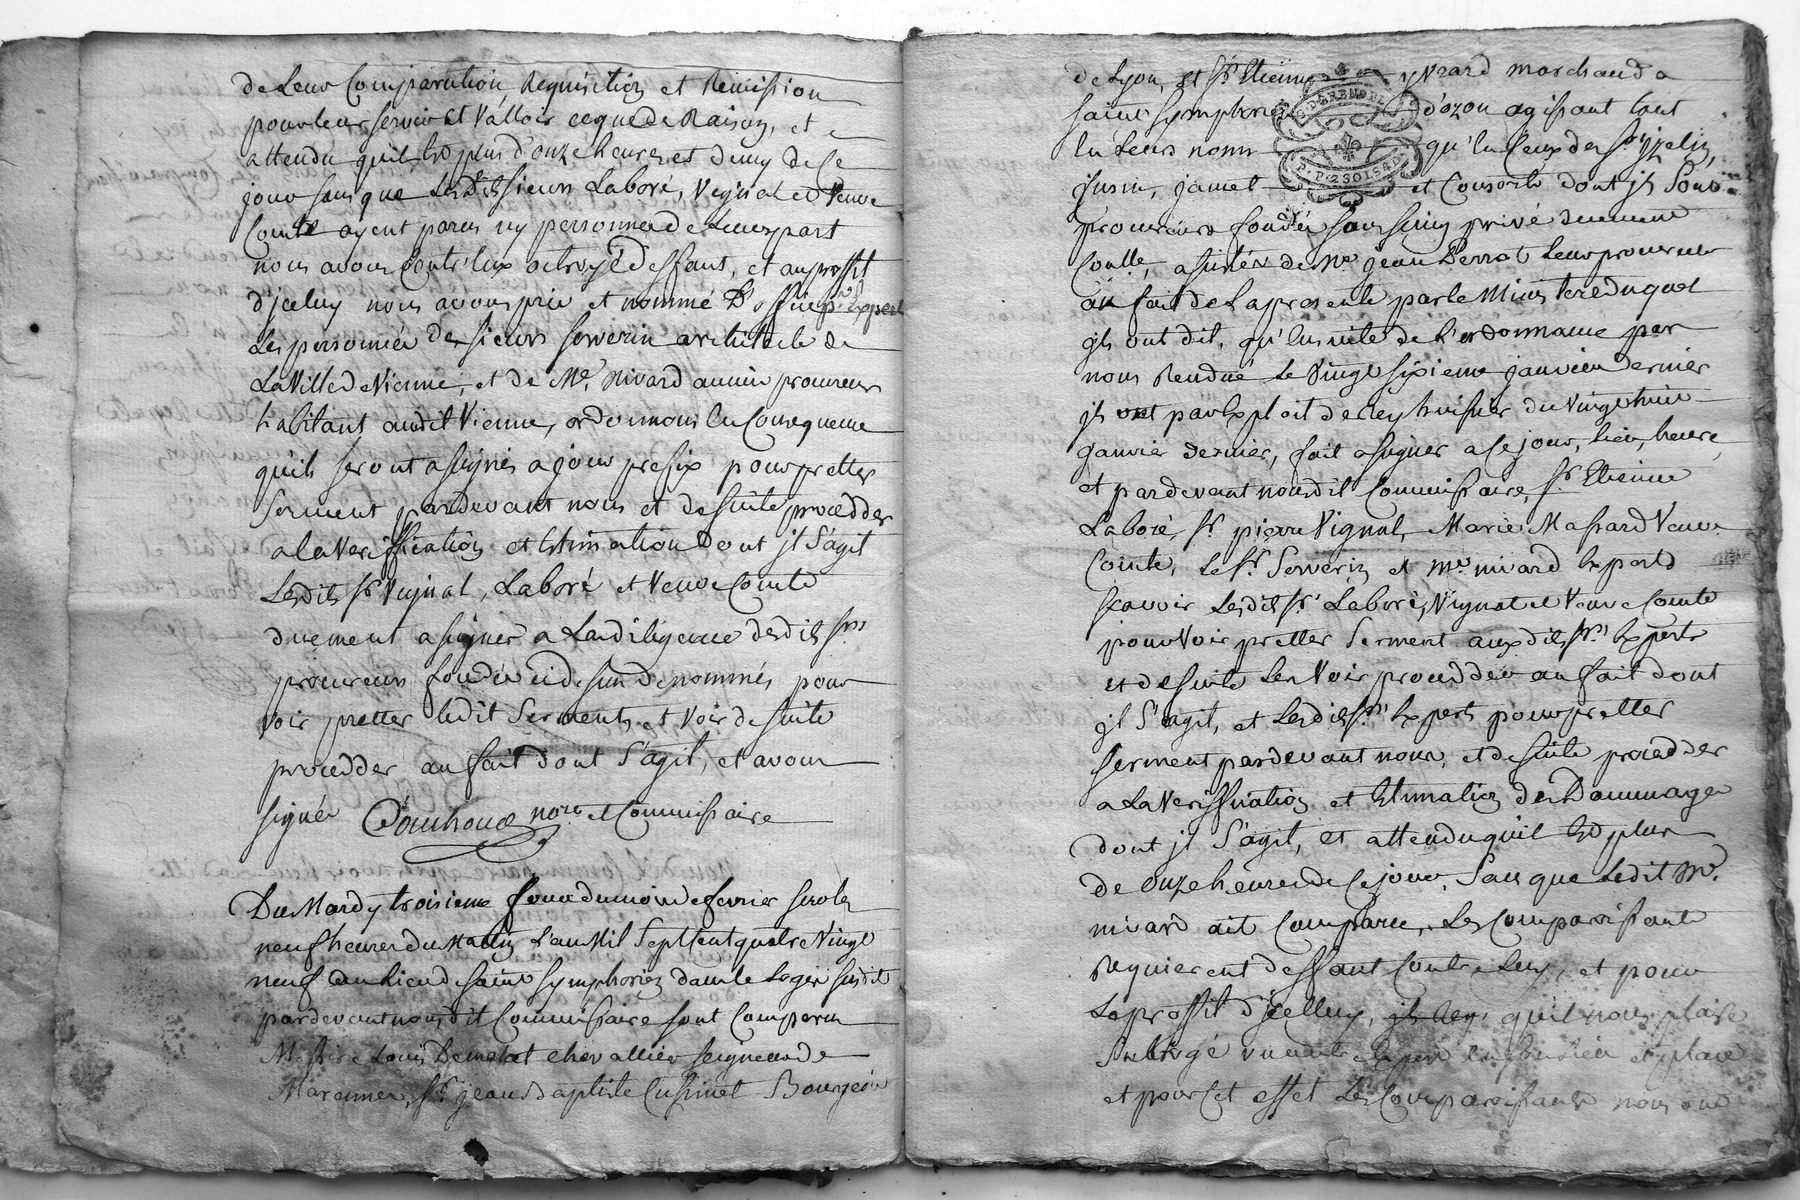 de Leur Comparution Requisition et Remission
pour leur servir et Valloir ce que de Raison, et
attendu qu'il est plus d'onze heures et demy de Ce
jour sans que Lesdits sieurs Laboré, Vignat et Veuve
Comte ayent parus ny personne de Leur part
nous avons Contr'eux octroyé deffaut, et au proffit
d'jceluy nous avons pris et nommé d'office pr. Expert
Les personnes de sieurs serverin architecte de
La Ville de Vienne, et de Me. nivard ancien procureur
habitant audit Vienne, ordonnons En Consequence
qu'ils seront assignés a jour prefix pour pretter
serment pardevant nous et de suitte procedder
a la Veriffication et Estimation dont jl S'agit
Lesdits srs Vignat, Laboré et Veuve Comte
duement assigner a La diligence desdits srs
procureurs fondés ci dessus denommés pour
voir pretter ledit Serment, et Voir de suitte
procedder au fait dont S'agit, et avons
signés nore et Commissaire
Du Mardy troisieme jour du mois de fevrier sur les
neuf heures du Mattin L'an Mil Sept Cent quatre Vingt
neuf au Lieu de saint symphorien dans le Logis susdit
pardevant nous dit Commissaire sont Comparus
Messire Louis chevallier seigneur de
Marennes, sr. jean Baptiste Cusinet Bourgeois
de Lyon, et sr. Etienne yvrard marchand a
saint symphorien d'ozon agissant tant
En Leurs noms qu'En Ceux des srs
jusin, jamet et Consorts dont jls Sont
procureurs fondés sous seing privé duement
Coulle, assistés de Me jean Perrot Leur procureur
au fait de La presente par le Ministere duquel
jls ont dit, qu'Ensuite de L'ordonnance par
nous Rendue Le Vingt sixieme janvier dernier
jls ont par Exploit de Rey huissier du Vingt huit
janvier dernier, fait assigner a Ce jour, lieu, heure,
et pardevant nous dit Commissaire, sr. Etienne
Laboré, sr. pierre Vignat, Marie Massard Veuve
Comte, Le sr. Serverin et Me. nivard Experts
sçavoir Lesdits srs. Laboré, Vignat et Veuve Comte
pour Voir pretter Serment auxdits srs. Experts
et de suitte Les Voir procedder au fait dont
jl S'agit, et Lesdits srs. Experts pour pretter
serment pardevant nous, et de suitte procedder
a La Veriffication et Estimation des Dommages
dont jl S'agit, et attendu qu'il Est plus
de onze heures de Ce jour, Sans que Ledit Me.
nivard ait Comparu, Les Comparoissants
Requierent deffaut Contre Luy, et pour
Le proffit d'jcelluy, qu'il nous plaise
Subrogé un autre Expert En son Lieu et place
et pour Cet effet Les Comparoissants nous ont
D. GRENOBLE
P. P. 2 SOLS 4 D.